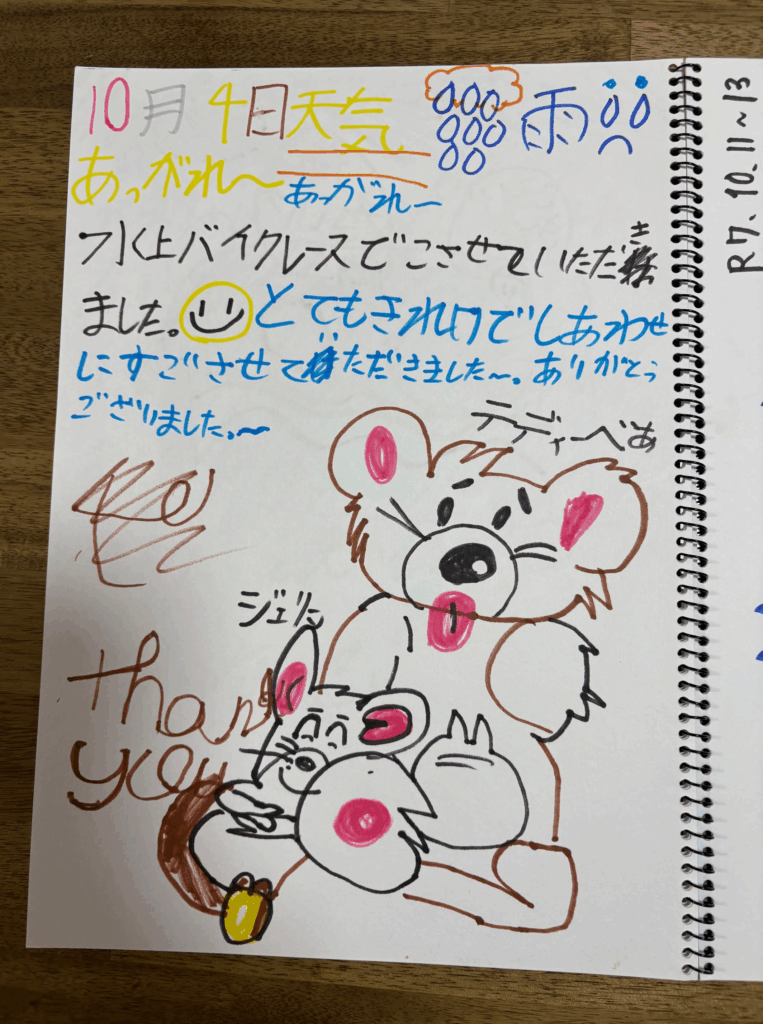 10月4日天気 雨
あっがれ〜
あっがれー
水上バイクレースでこさせていただき
ました。とてもきれけでしあわせ
にすごさせていただきました〜。ありがとぅ
ござりました。〜
テディーベあ
ジェリー
thank
you
R7.10.11~13